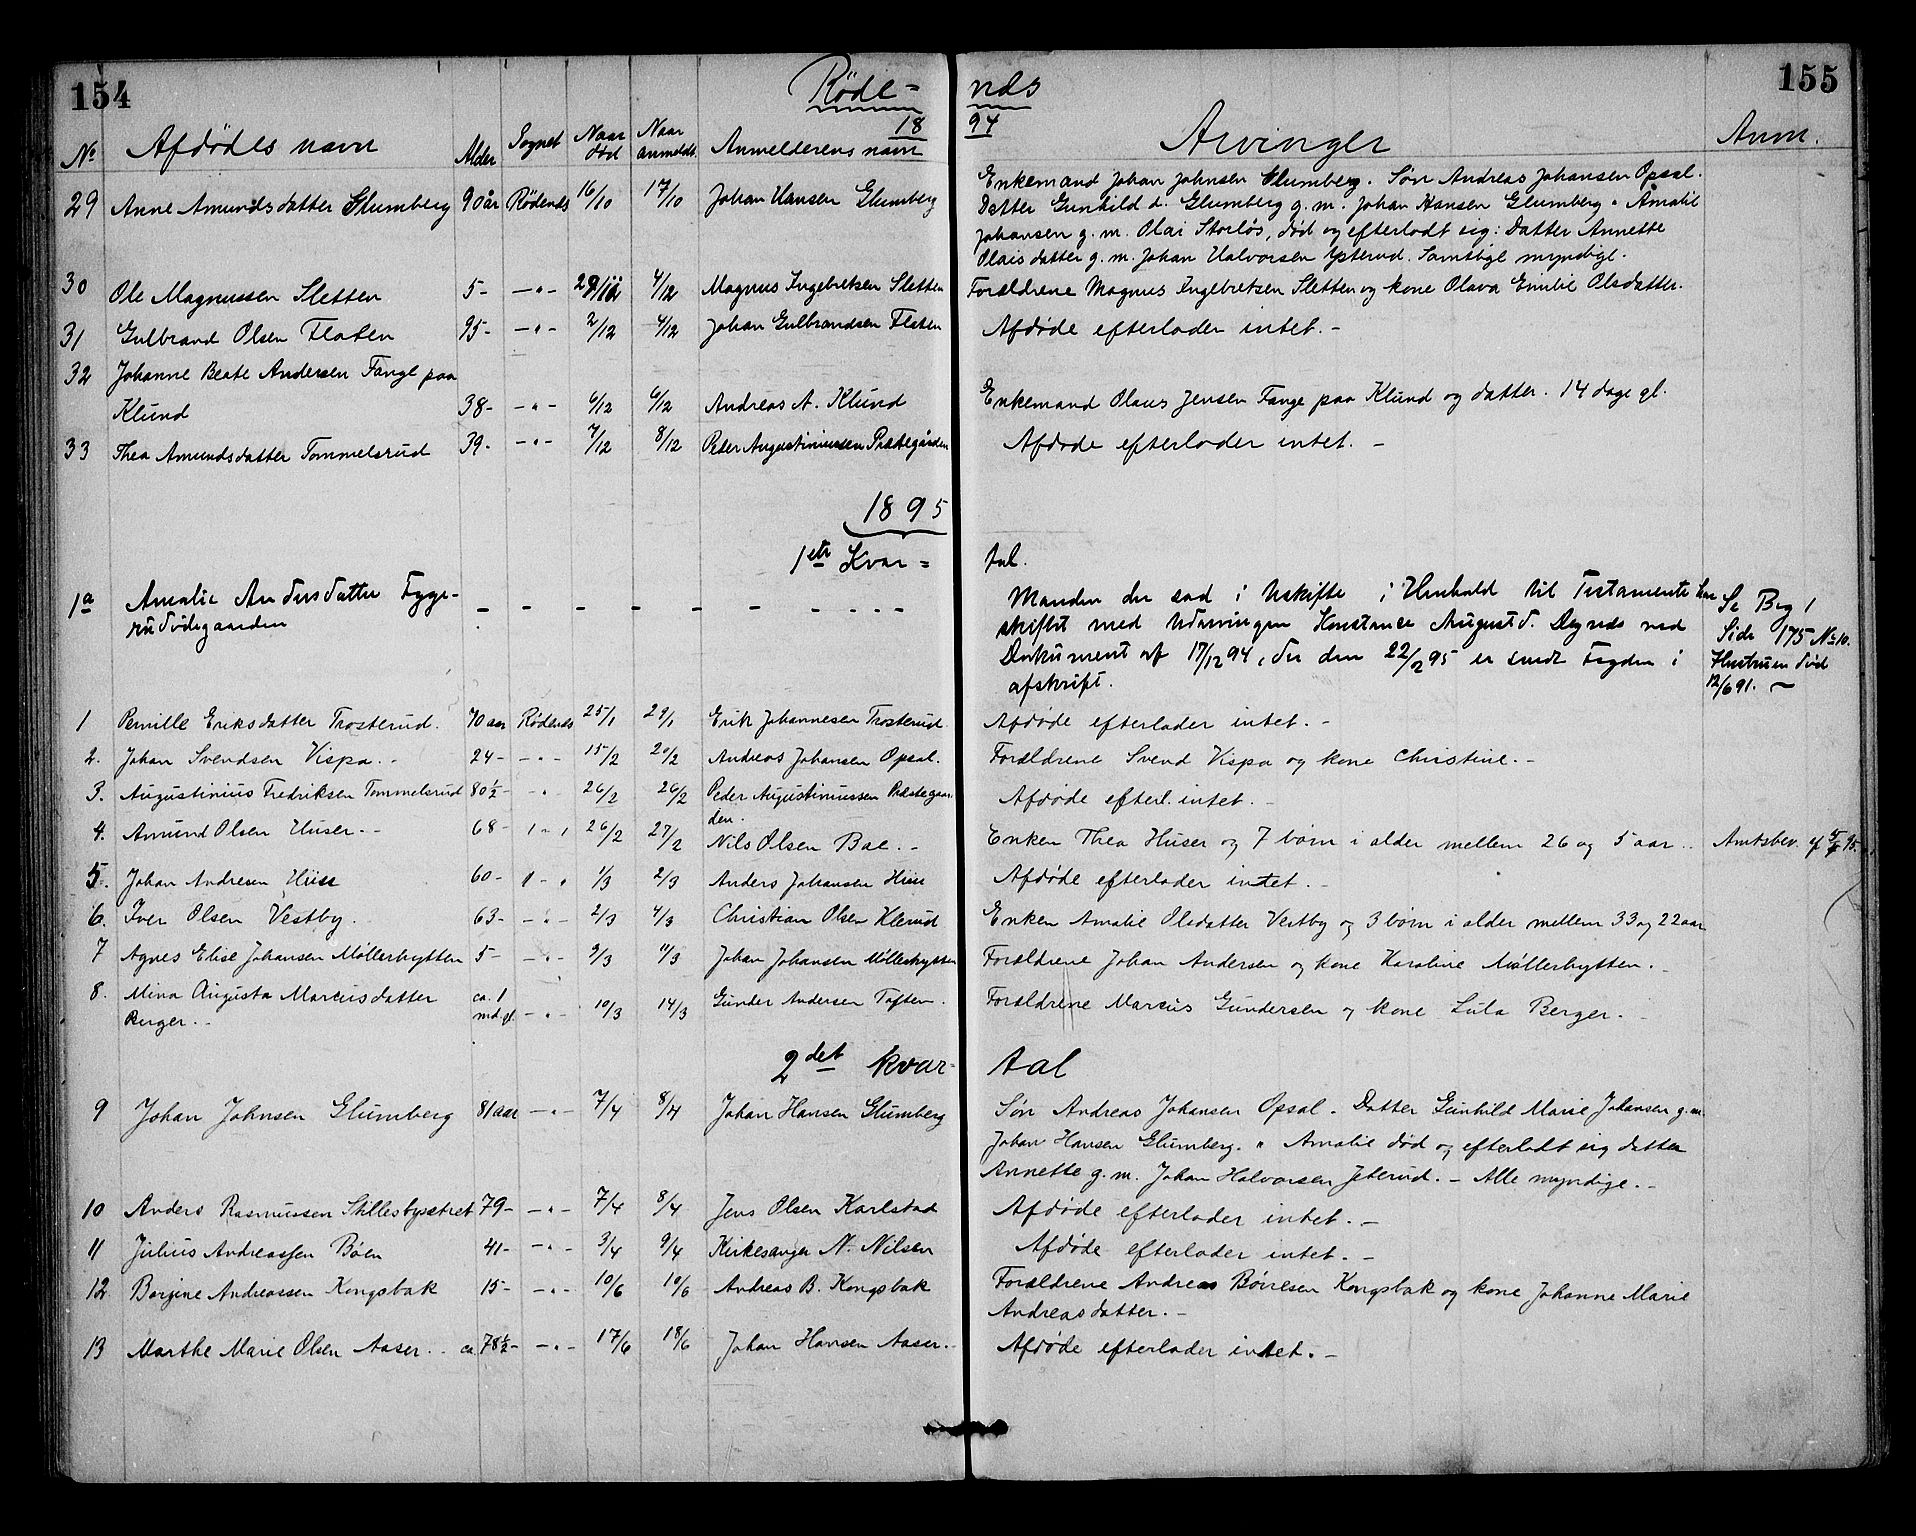 154 Røde= nds 155
18 94
No Afdødes navn Alder Sognet Naar død Naar anmeldt. Anmelderens navn Arvinger Anm.
29 Anne Amundsdatter Glumberg 90 år Rødends 16/10 17/10 Johan Hansen Glumberg Enkemand Johan Johnsen Glumberg. Søn Andreas Johansen Opsal.
Datter Gunhild d. Glumberg g. m. Johan Hansen Glumberg " Amalie
Johansen g. m. Olai Storløs, død og efterladt sig: Datter Annette
Olaisdatter g. m. Johan Halvorsen Ysterud. Samtlige myndige.
30 Ole Magnussen Sletten 5- -"- 4/12 Magnus Ingebretsen Sletten Forældrene Magnus Ingebretsen Sletten og kone Olava Emilie Olsdatter.
31 Gulbrand Olsen Flaten 95- -"- 2/12 4/12 Johan Gulbrandsen Flaten Afdøde efterlader intet.-
32 Johanne Beate Andersen Fange paa
Klund 38- -"- 6/12 6/12 Andreas A. Klund Enkemand Olaus Jensen Fange paa Klund og datter. 14 dage gl.
33 Thea Amundsdatter Tommelsrud 39- -"- 7/12 8/12 Peder Augustinussen Præstegården Afdøde efterlader intet. -
1895
1ste Kvar= tal.
1a Amalie Andersdatter Tyge-
rudødegaarden - - - - - - - - - - Manden der sad i Uskifte i Henhold til Testamente har
skiftet med Udarvingen Konstance August d. Degnes ved
Dokument af 17/12 94, der den 22/2 95 er sendt Fogden i
afskrift.
Se Bog 1
Side 175 No 10.
Hustruen død
12/6 91. -
1 Pernille Eriksdatter Trosterud. 70 aar Rødends 25/1 29/1 Erik Johannesen Trosterud Afdøde efterlader intet. -
2. Johan Svendsen Vispa. - 24- -"- 15/2 20/2 Andreas Johansen Opsal. Forældrene Svend Vispa og kone Christine. -
3. Augustinius Fredriksen Tommelsrud 80½- -"- 26/2 26/2 Peder Augustinussen Præstegaar
den. Afdøde efterl. intet. -
4. Amund Olsen Huser. - 68- "-" 26/2 27/2 Nils Olsen Bae. - Enken Thea Huser og 7 børn i alder mellem 26 og 5 aar. . Amtsbev. af 95.
5. Johan Andresen Hiis 60- "-" 1/3 2/3 Anders Johansen Hiis Afdøde efterlader intet. -
6. Iver Olsen Vestby. 63- -"- 2/3 4/3 Christian Olsen Klerud Enken Amalie Olsdatter Vestby og 3 børn i alder mellem 33 og 22 aar
7 Agnes Elise Johansen Møllerhytten 5- -"- 9/3 11/3 Johan Johansen Møllerhytten Forældrene Johan Andersen og kone Karoline Møllerhytten. -
8. Mina Augusta Marcusdatter
Berger. - ca. 1 md. gl. -"- 10/3 14/3 Gunder Andersen Toften. Forældrene Marcus Gundersen og kone Lula Berger. -
2det kvar- tal
9 Johan Johnsen Glumberg 81 aar -"- 7/4 8/4 Johan Hansen Glumberg Søn Andreas Johansen Opsal. Datter Gunhild Marie Johansen g. m.
Johan Hansen Glumberg. " Amalie død og efterladt sig datter
Annette g. m. Johan Halvorsen Jsterud. - Alle myndige. -
10 Anders Rasmussen Stillesbysætret 79- -"- 7/4 8/4 Jens Olsen Karlstad Afdøde efterlader intet. -
11 Julius Andreassen Bøen 41- -"- 3/4 9/4 Kirkesanger N. Nilsen Afdøde efterlader intet. -
12 Borgine Andreassen Kongsbak 15- -"- 10/6 10/6 Andreas B. Kongsbak Forældrene Andreas Børresen Kongsbak og kone Johanne Marie
Andreasdatter. -
13 Marthe Marie Olsen Aaser. . ca. 78½- -"- 17/6 18/6 Johan Hansen Aaser. - Afdøde efterlader intet. -